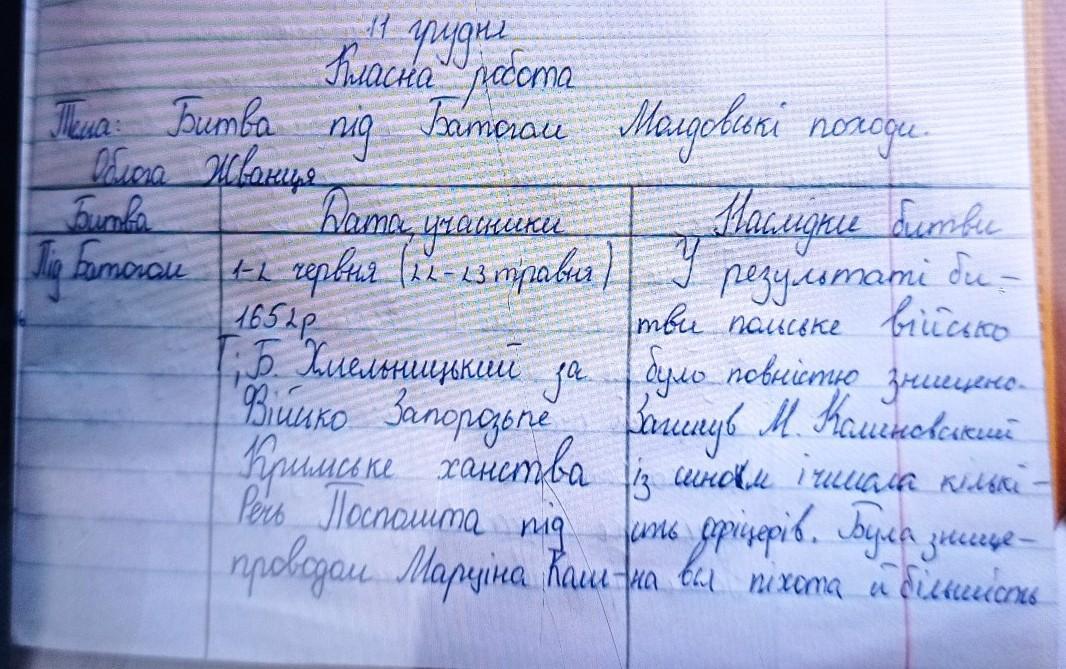 11 грудня
Класна робота
Тема: Битва під Батогом Молдовські походи.
Облога Жванця
Битва
Дата, учасники
Наслідки битви
Під Батогом
1-2 червня (22-23 травня)
1652р
Т; Б. Хмельницький за
Військо Запорозьпе
Кримське ханства
Речь Посполита під
проводом Марціна Кали-
У результаті би-
тви польське військо
було повністю знищено.
Загинув М. Калиновський
із сином і чимала кількі-
сть офіцерів. Була знище-
на вся піхота й більшість